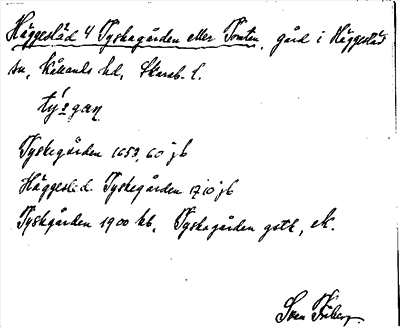 Häggesled 4 Tyskagården eller Tomten, gård i Häggesled
sn, Kållands hd, Skarab. l.
Tyskegården 1653, 60 jb
Häggesled. Tyskegården 1710 jb
Tyskgården 1900 kb, Tyskagården gstk, ek.
Sven Friberg.